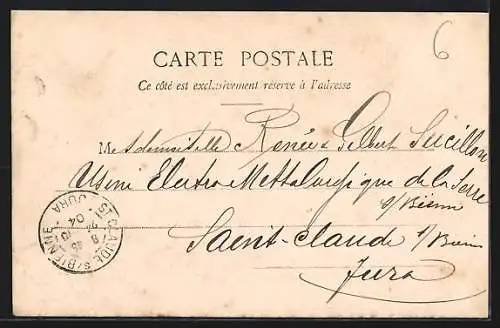 6
CARTE POSTALE
Ce côté est exclusivement réservé à l'adresse
M et demoiselle Renée & Gilbert
Usine Electro Mettalurgique de la Serre
s/Bienne
Saint-Claude s/Bienne
Jura
ST CLAUDE S/BIENNE
JURA
04